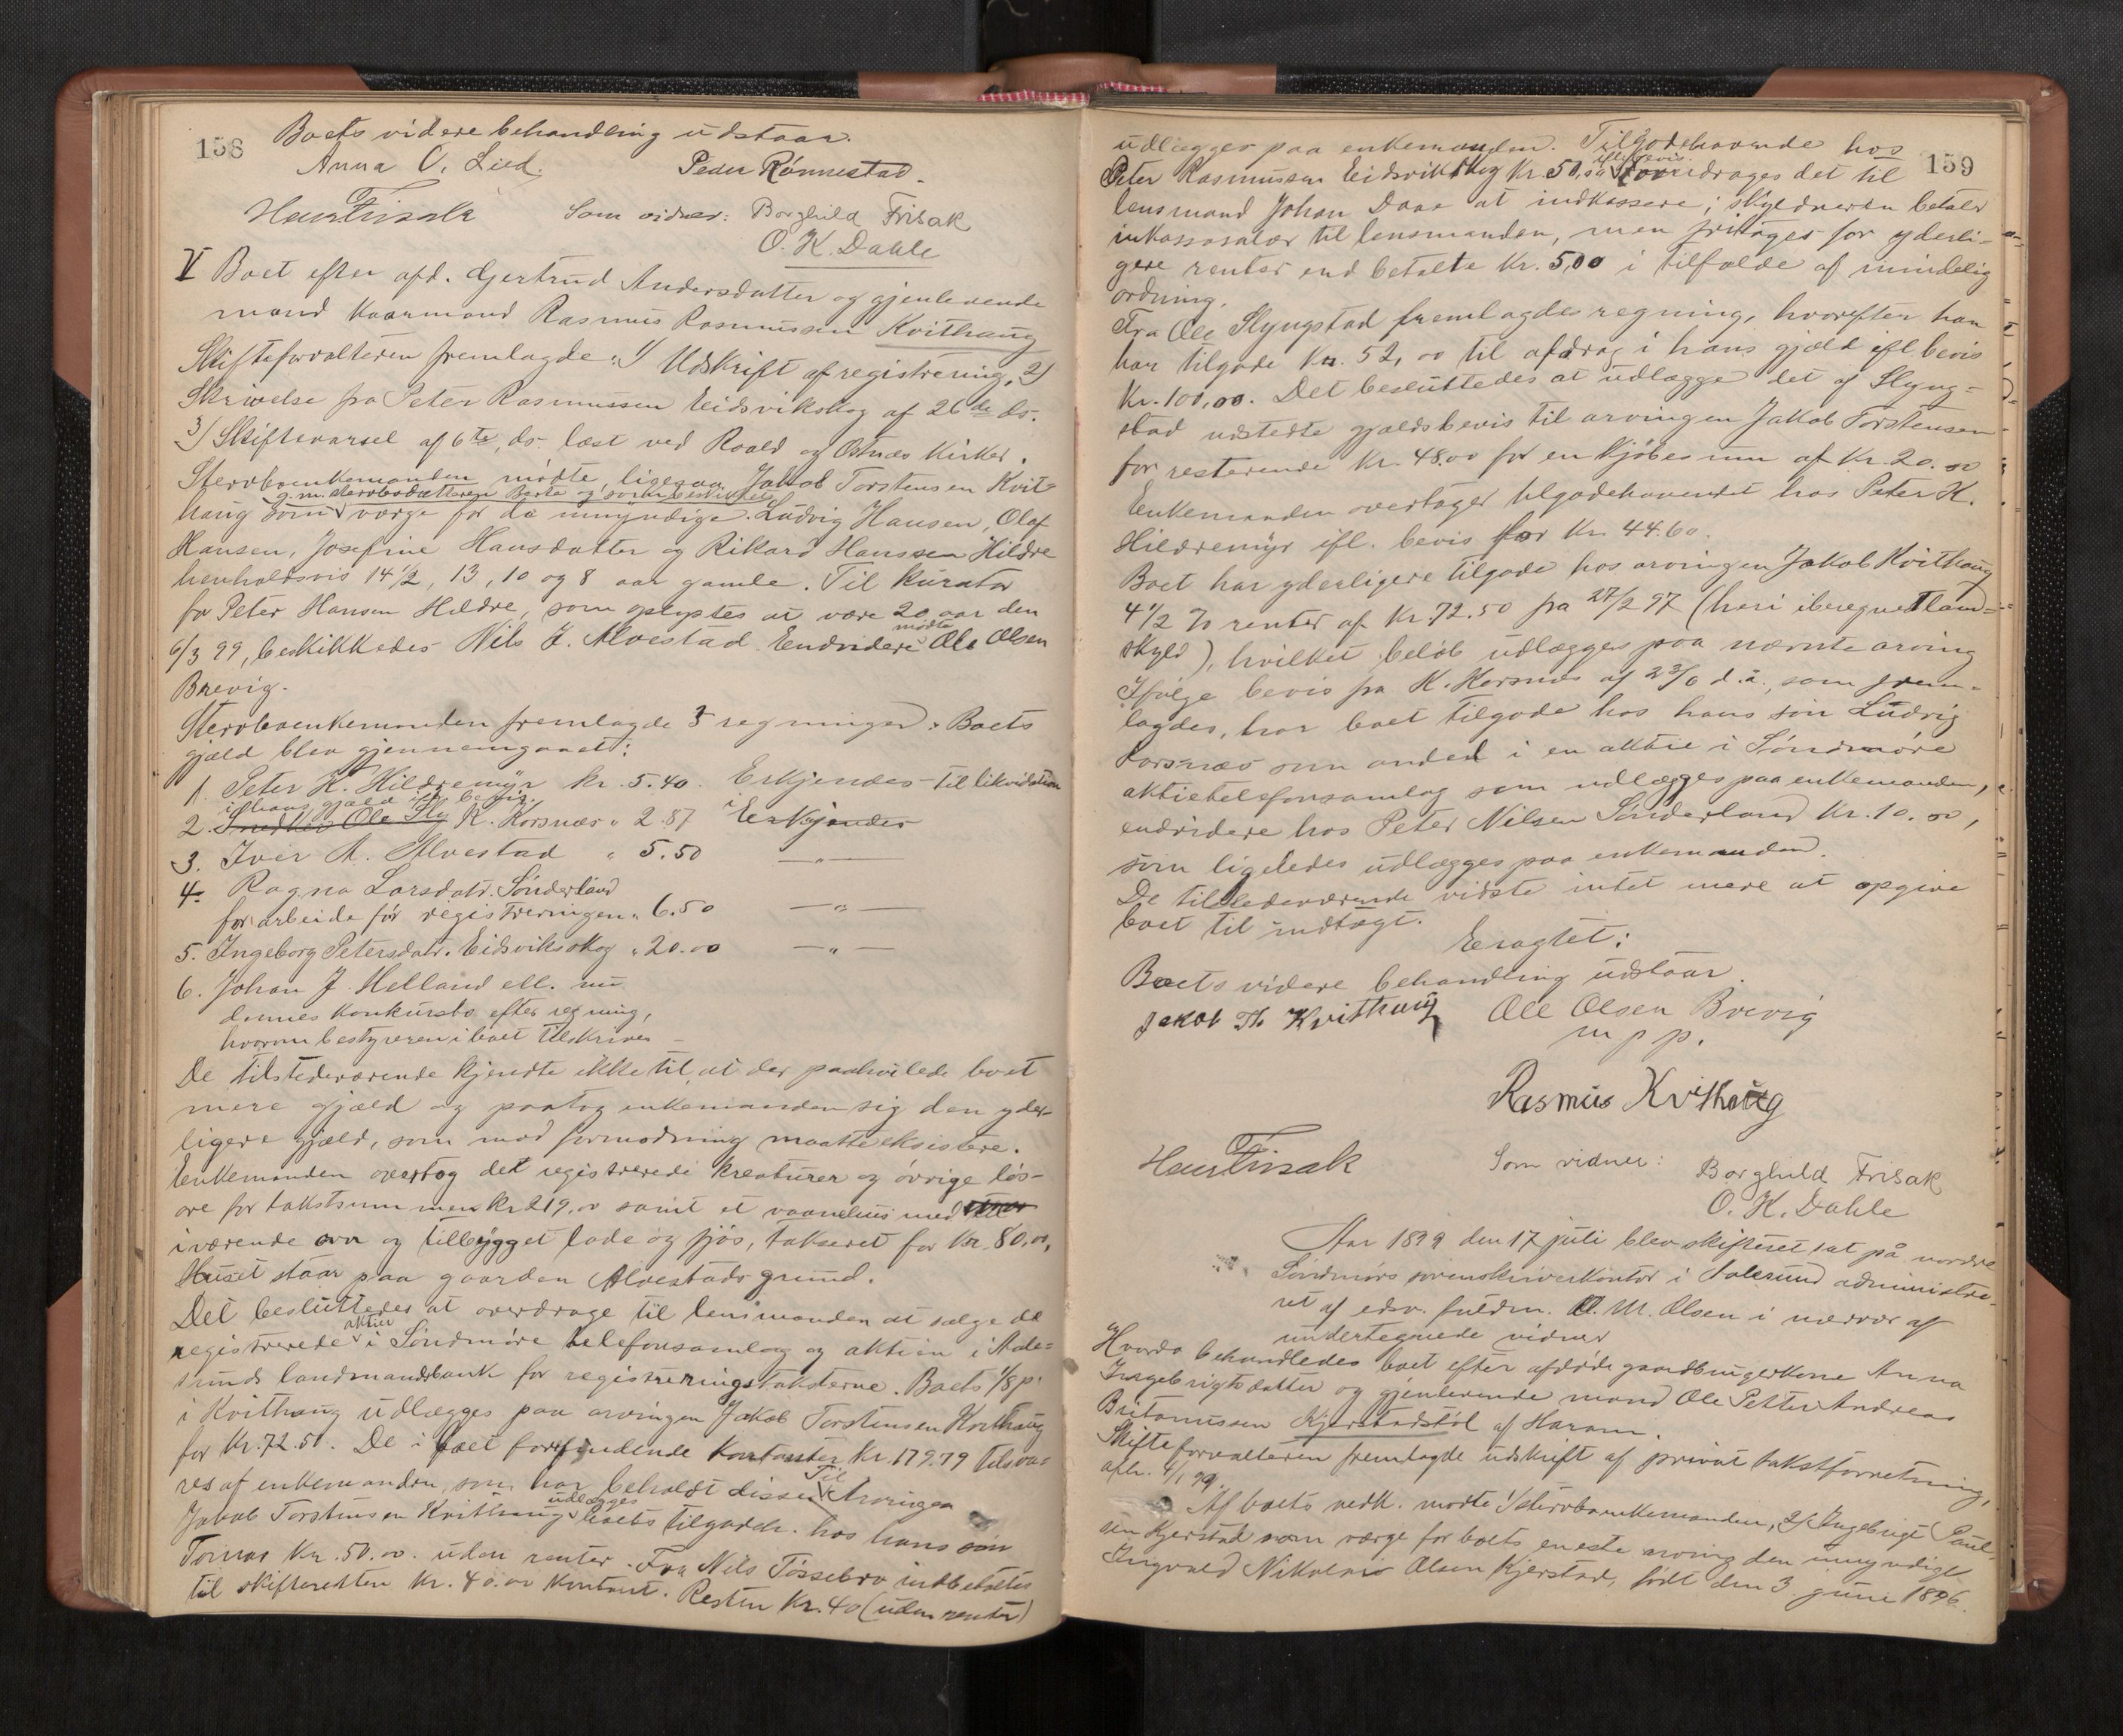 158
Boets videre behandling udstaar.
Anna O. Lied. Peder Rönnestad.
Hans Frisak Som vidner: Borghild Frisak
O. K. Dahle
V Boet efter afd. Gjertrud Andersdatter og gjenlevende
mand Kaarmand Rasmus Rasmussen Kvithaug
Skifteforvalteren fremlagde: 1/ Udskrift af registrering, 2/
Skrivelse fra Peter Rasmussen Eidsvikskog af 26de ds.
3/ Skiftevarsel af 6te ds. læst ved Roald og Østnæs Kirker.
Stervboenkemanden mødte, ligesaa Jakob Torstensen Kvit-
g. m. stervbodatteren Berte og som beskikket
haug som værge for de umyndige. Ludvig Hansen, Olaf
Hansen, Josefine Hansdatter og Rikard Hanssen Hildre
henholdsvis 14 1/2, 13, 10 og 8 aar gamle. Til kurator
for Peter Hansen Hildre, som oplystes at være 20 aar den
6/3 99, beskikkedes Nils J. Alvestad. Endvidere mødte Ole Olsen
Brevig.
Stervboenkemanden fremlagde 3 regninger. Boets
gjæld blev gjennemgaaet:
1. Peter K. Hildremyr kr. 5.40 Erkjendes til likvidation
i hans gjæld ifl. bevis.
2. Snedker Ole Sly K. Korsnæs " 2.87 Erkjendes
3. Iver A. Alvestad " 5.50 — " —
4. Ragna Larsdatr. Sönderland
for arbeide før registreringen " 6.50 — " —
5. Ingeborg Petersdatr. Eidsvikskog " 20.00 — " —
6. Johan J. Helland ell. nu
dennes konkursbo efter regning,
hvorom bestyreren i boet tilskrives —
De tilstedeværende kjendte ikke til, at der paahvilede boet
mere gjæld og paatog enkemanden sig den yder-
ligere gjæld, som mod formodning maatte eksistere.
Enkemanden overtog det registrerede kreaturer og øvrige løs-
øre for takstsummen kr 219.00 samt et vaanehus med
iværende ovn og tilbygget lade og fjøs, takseret for kr. 80,00,
Huset staar paa gaarden Alvestads grund.
Det besluttedes at overdrage til lensmanden at sælge de
registrerede aktier i Söndmöre telefonsamlag og aktien i Aale-
sunds landmandsbank for registreringstaksterne. Boets 1/8 p.
i Kvithaug udlægges paa arvingen Jakob Torstensen Kvithaug
for Kr. 72.50. De i boet forefindende kontanter kr. 179.79 tilsva-
res af enkemanden, som har beholdt disse. Til Arvingen
Jakob Torstensen Kvithaug udlægges boets tilgodeh. hos hans søn
Tomas Kr. 50.00. uden renter. Fra Nils Tøssebro indbetaltes
til skifteretten kr. 40.00 kontant. Resten Kr. 40 (uden renter)
159
udlægges paa enkemanden. Tilgodehavende hos
Peter Rasmussen Eidsvikskog Kr. 50,00 ifl. bevis overdrages det til
lensmand Johan Daae at indkassere; skyldneren betaler
inkassosalær til lensmanden, men fritages for yderli-
gere renter end betalte Kr. 5,00 i tilfælde af mindelig
ordning.
Fra Ole Slyngstad fremlagdes regning, hvorefter han
har tilgode Kr. 52,00 til afdrag i hans gjæld ifl bevis
Kr. 100,00. Det besluttedes at udlægge det af Slyng-
stad udstedte gjældsbevis til arvingen Jakob Torstensen
for resterende kr. 48.00 for en kjøbesum af Kr. 20.00
Enkemanden overtager tilgodehavendet hos Peter K.
Hildremyr ifl. bevis for kr. 44.60.
Boet har yderligere tilgode hos arvingen Jakob Kvithaug
4 1/2 % renter af Kr. 72.50 fra 27/2 97 (heri iberegnet land-
skyld), hvilket beløb udlægges paa nævnte arving
Ifølge bevis fra K. Korsnæs af 23/6 d.å., som frem-
lagdes, har boet tilgode hos hans søn Ludvig
Korsnæs som andel i en aktie i Söndmöre
aktietelefonsamlag som udlægges paa enkemanden,
endvidere hos Peter Nilsen Sönderland kr. 10.00,
som ligeledes udlægges paa enkemanden.
De tilstedeværende vidste intet mere at opgive
boet til indtægt.
Eragtet:
Boets videre behandling udstaar.
Jakob Th. Kvithaug Ole Olsen Brevig
m p p.
Rasmus Kvithaug
Hans Frisak Som vidner: Borghild Frisak
O. K. Dahle
Aar 1899 den 17 juli blev skifteret sat på nordre
Søndmørs sorenskriverkontor i Aalesund administre-
ret af edsv. fuldm. O. M. Olsen i nærvær af
undertegnede vidner
Hvorda behandledes boet efter afdøde gaardbrugerkone Anna
Ingebrigtsdatter og gjenlevende mand Ole Petter Andreas
Britanussen Kjerstadstøl af Haram.
Skifteforvalteren fremlagde udskrift af privat takstforretning,
afh. 4/1 99.
Af boets vedk. mødte 1/ stervboenkemanden, 2/ Ingebrigt Paul-
sen Kjerstad som værge for boets eneste arving den umyndige
Ingvald Nikolai Olsen Kjerstad, født den 3. juni 1896.